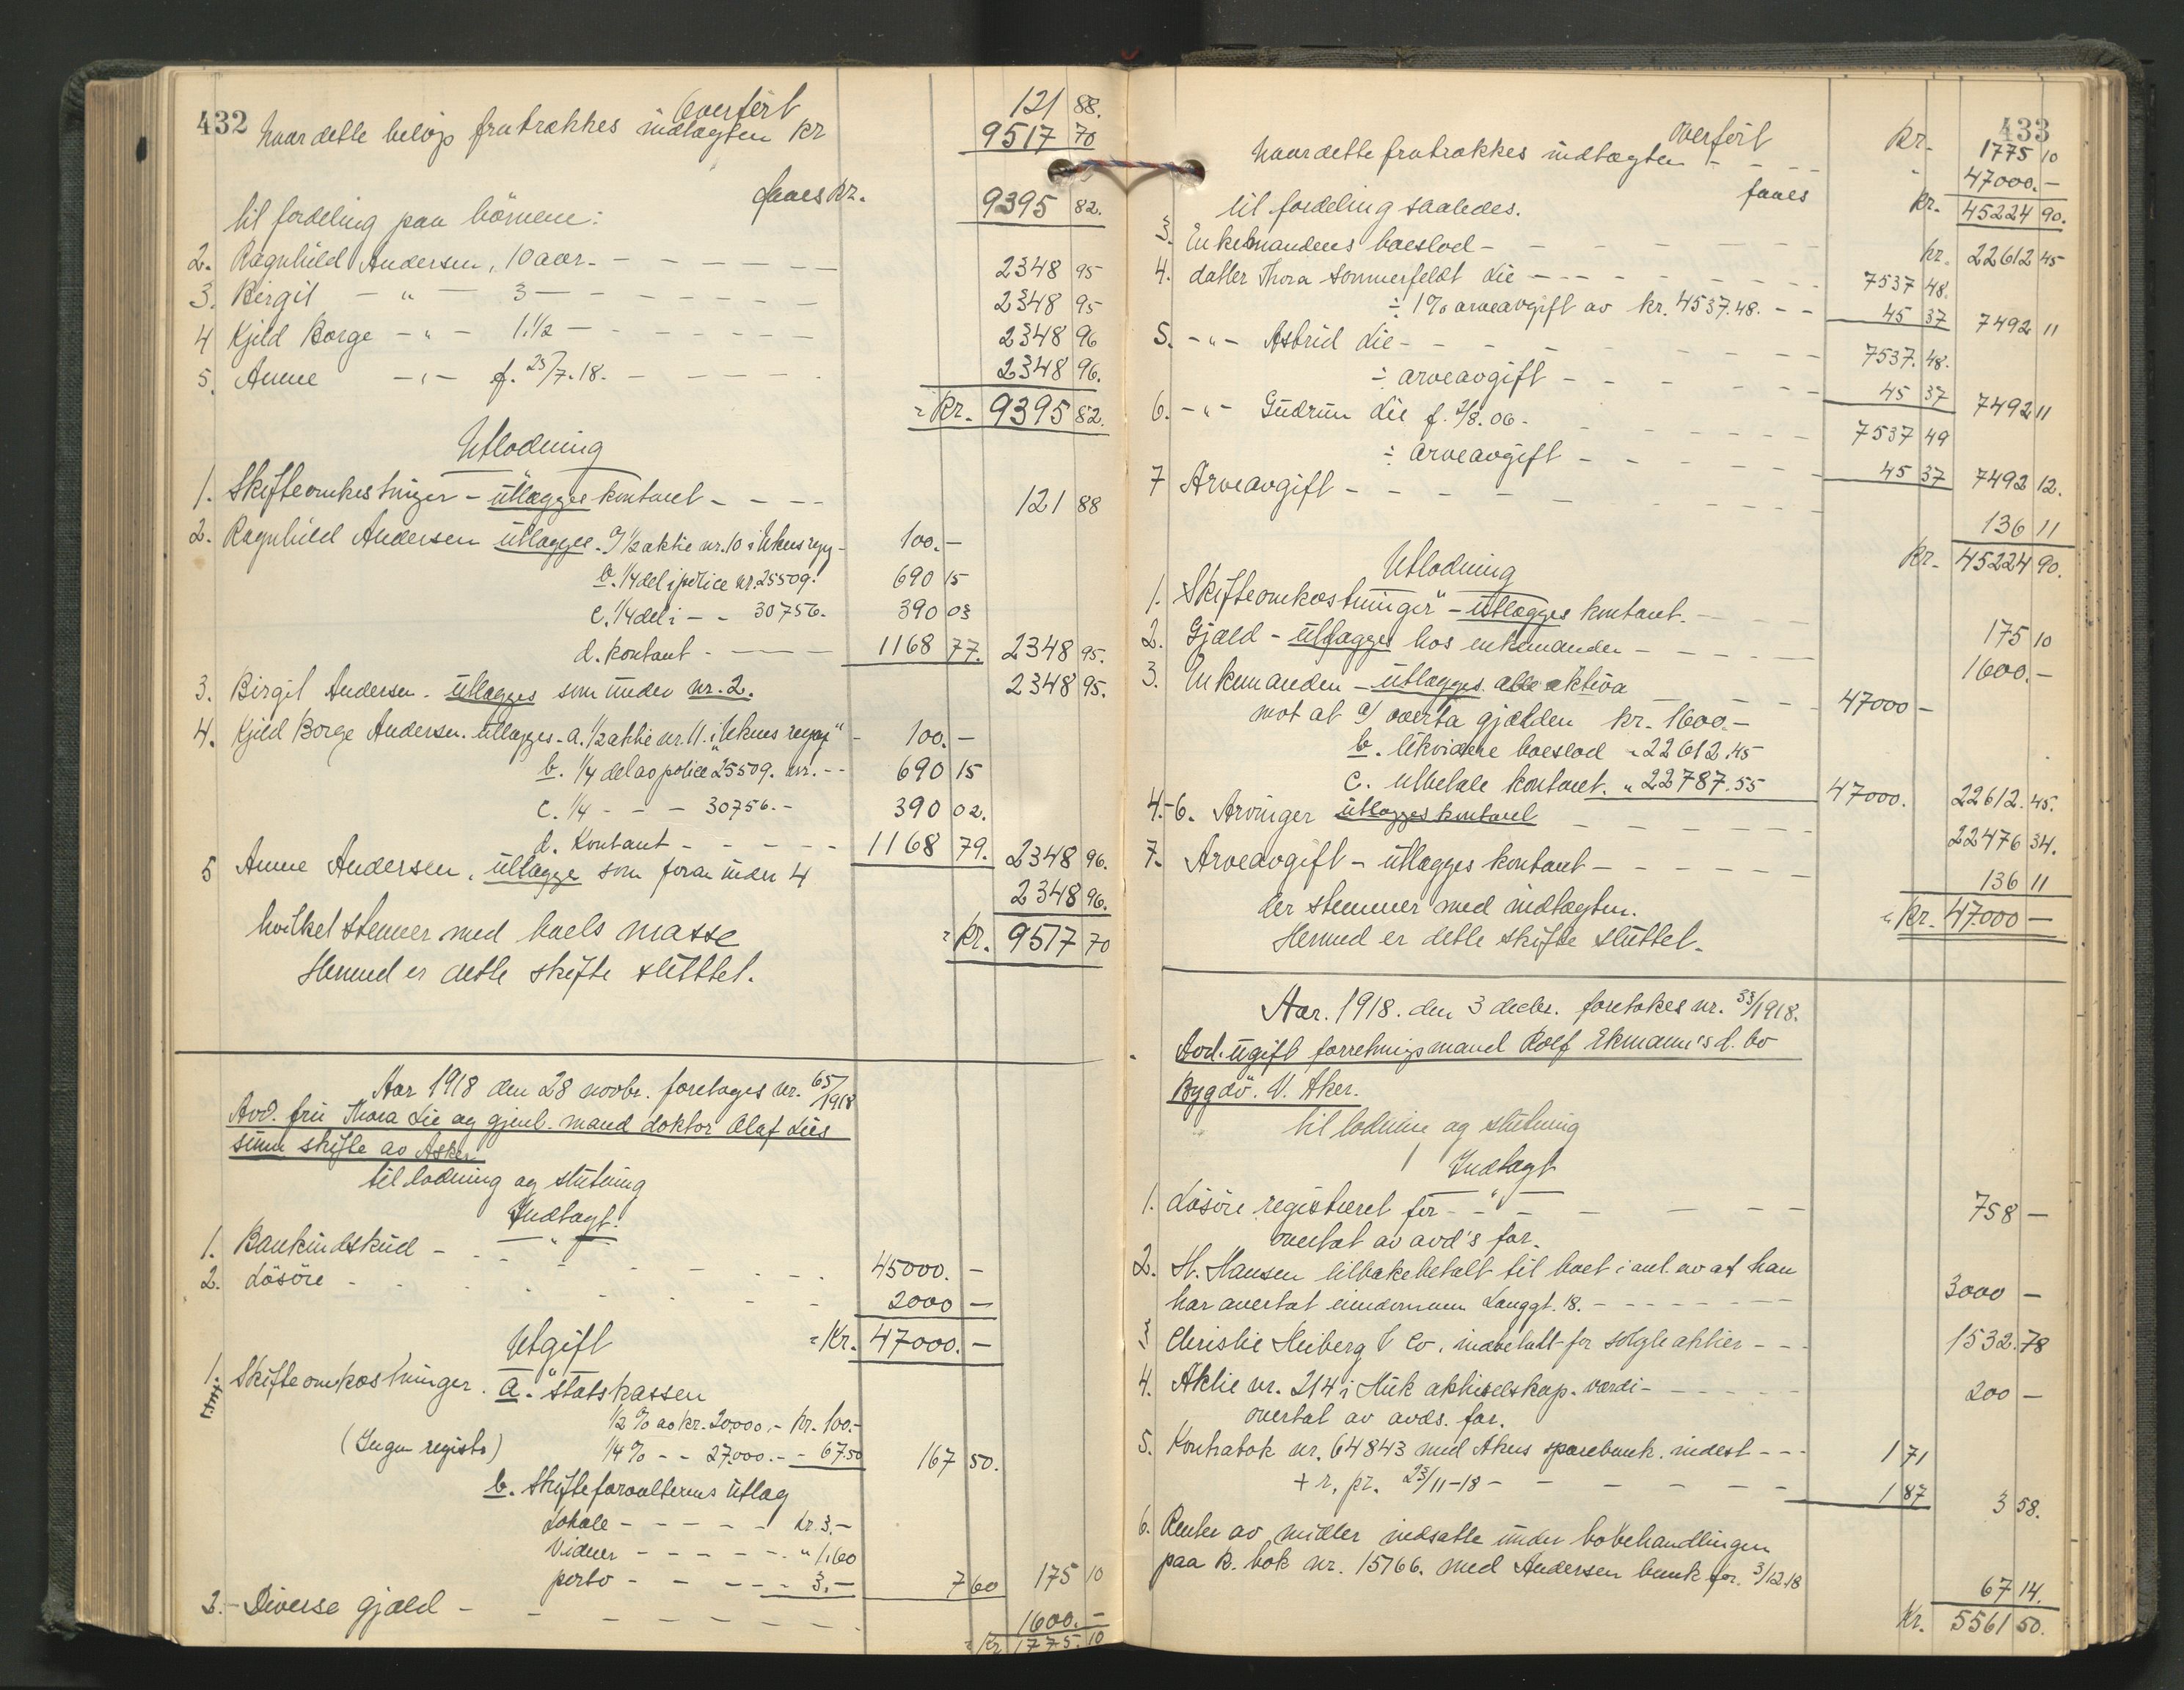 432
Overført 121 88.
naar dette beløp fratrækkes indtægten kr 9517 70
faaes kr. 9395 82.
til fordeling paa børnene:
2. Ragnhild Andersen, 10 aar. - - - - - - 2348 95
3. Birgit - " - 3 - - - - - - - 2348 95
4 Kjeld Borge - " - 1.1/2 - - - - - - 2348 96
5. Anne - " - f. 25/7.18. - - - - - 2348 96.
= Kr. 9395 82.
Utlodning
1. Skifteomkostninger - utlægges kontant - - - - 121 88
2. Ragnhild Andersen utlægges - a 1/2 aktie nr. 10 i 100. -
b. 1/4 del i police nr. 25509. 690 15
c. 1/4 del i - - 30756. 390 03
d. kontant - - - - 1168 77. 2348 95.
3. Birgit Andersen - utlægges som under nr. 2. 2348 95.
4. Kjeld Borge Andersen. utlægges - a. 1/2 aktie nr. 11. i 100. -
b. 1/4 del av police 25509. nr. - - 690 15
c. 1/4 - - - 30756. - 390 02.
d. Kontant - - - - - 1168 79. 2348 96.
5 Anne Andersen, utlægges som foran under 4 2348 96.
hvilket stemmer med boets masse = kr. 9517 70
Hermed er dette skifte sluttet.
Aar 1918 den 28 novbr. foretages nr. 65/1918
Avd. fru Thora Lie og gjenl. mand doktor Olaf Lies
skifte av Asker
til lodning og slutning
Indtægt.
"
1. Bankindskud - - - - - - 45000. -
2. Løsøre - - - - - - 2000 -
= Kr. 47000. -
Utgift
"
1. Skifteomkostninger. a. Statskassen
1/2 % av kr. 20,000.- kr. 100.-
(Ingen registr) 1/4 % - - 27.000.- - 67.50 167 50.
b. Skifteforvalterens utlæg
Lokale - - - - - kr. 3.-
Vidner - - - - - " 1.60
porto - - - - - 3.- 7 60 175 10
2. - Diverse gjæld - - - - - - - 1600. -
= Kr. 1775. 10
433
Overført kr. 1775 10
naar dette fratrækkes indtægten - - - " 47000. -
faaes kr. 45224 90.
til fordeling saaledes.
3. Enkemandens boeslod - - - - - - kr. 22612 45
4. datter Thora Sommerfeldt Lie - - - - - - 7537 48.
÷ 1% arveavgift av kr. 4537.48. - - 45 37 7492 11
5. - " - Astrid Lie - - - - - - 7537. 48.
÷ arveavgift - - - - - 45 37 7492 11
6. - " - Gudrun Lie f. 2/8.06. - - - - 7537 49
÷ arveavgift - - - - - 45 37 7492 12.
7 Arveavgift - - - - - - - 136 11
Kr. 45224 90.
Utlodning
"
1. Skifteomkostninger - utlægges kontant. - 175 10
2. Gjæld - utlægges hos enkemanden - - - - 1600. -
3. Enkemanden - utlægges alle aktiva - - - 47000 -
mot at a/ overta gjælden kr. 1600. -
b. likvidere boeslod " 22612.45
c. utbetale kontant. " 22787.55 47000. 22612. 45.
4.-6. Arvinger utlægges kontant - - - - - 22476 34.
7. Arveavgift - utlægges kontant - - - - - 136 11
der stemmer med indtægten. = Kr. 47000 -
Hermed er dette skifte sluttet.
Aar. 1918. den 3 decbr. foretakes nr. 33/1918.
Avd. ugift forretningsmand Rolf Ekmann's d. bo
Bygdø. V. Aker.
til lodning og slutning
Indtægt
"
1. Løsøre registreret for - - - - - - 758 -
overtat av avd's far.
2. H. Hansen tilbakebetalt til boet i anl. av at han
har overtat eiendommen Langgt. 18. - - - - - - 3000 -
3 Christie Heiberg & Co, indbetalt for solgte aktier - - - 1532. 78
4. Aktie nr. 214 i Huk aktieselskap. værdi - - - - - - 200 -
overtat av avds. far.
5. Kontrabok nr. 64843 med Akers sparebank. indest - - - 1 71
+ r. pr. 23/11-18 - - - - - - 1 87 3 58.
6. Renter av midler indsatte under bobehandlingen
paa k. bok nr. 15766. med Andersens bank pr. 3/12.18 67 14.
Kr. 5561 50.